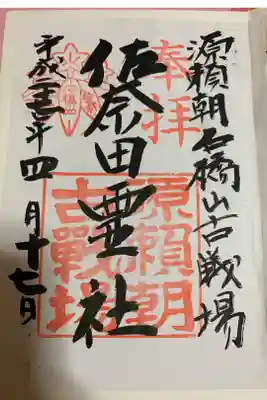 源頼朝石橋山古戦場
奉拝
佐奈田霊社
源頼朝
古戰場
平成二十三年四月十七日